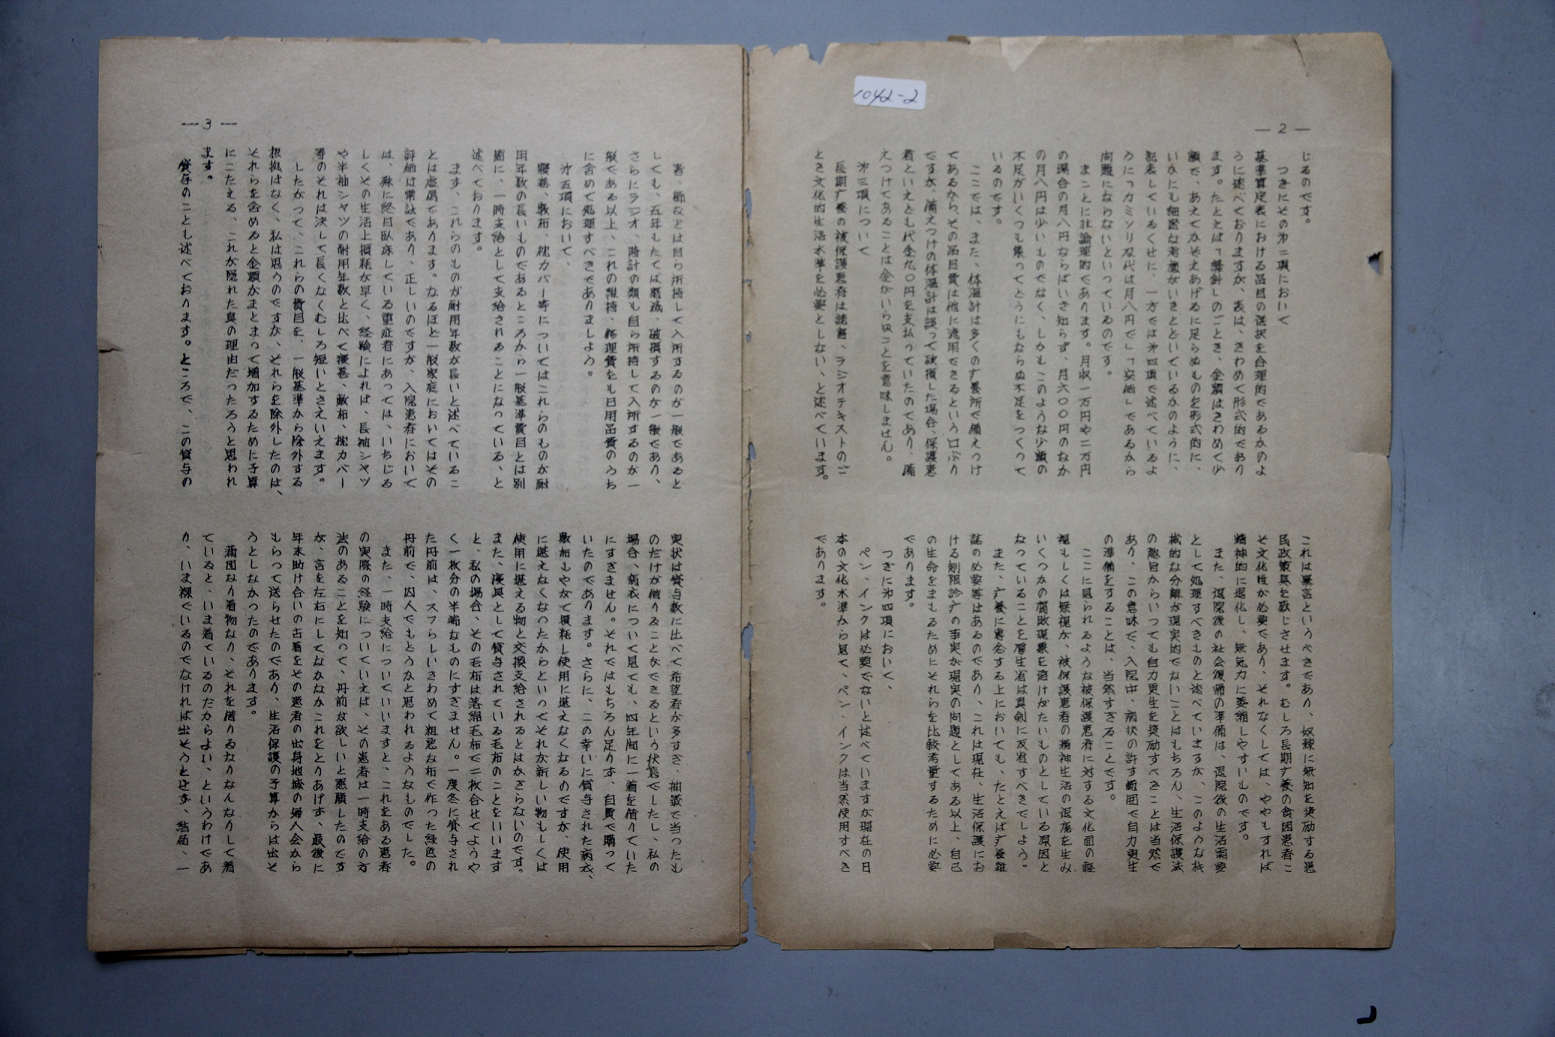 1042-2
— 2 —
じるのです。
つぎにその第二項において
基準算定表における品目の選択を合理的であるかのよ
うに述べておりますが、表は、きわめて形式的であり
ます。たとえば「縫針」のごとき、金額はきわめて少
額で、あえてかぞえあげるに足らぬものを形式的に、
いかにも細密な考慮がいきとどいているかのように、
記表しているくせに、一方では第四項で述べているよ
うに「カミソリな代は月八円で」「安価」であるから
問題にならないといっているのです。
まことに非論理的であります。月収一万円や二万円
の場合の月八円ならばいざ知らず、月六〇〇円のなか
の月八円は少いものでなく、しかもこのような少額の
不足がいくつも集ってどうにもならぬ不足をつくって
いるのです。
ここでは、また、体温計は多くの療養所で備えつけ
てあるから、その品目費は他に流用できるという口ぶり
ですが、備えつけの体温計は誤って破損した場合、保護患
者といえども代金九〇円を支払っていたのであり、備
えつけてあることは金がいらぬことを意味しません。
第三項について
長期療養の被保護患者は読書、ラジオテキストのご
とき文化的生活水準を必要としない、と述べています。
これは暴言というべきであり、奴隷に無知を奨励する愚
民政策臭を感じさせます。むしろ長期療養の貧困患者こ
そ文化度が必要であり、それなくしては、ややもすれば
精神的に退化し、無気力に萎縮しやすいものです。
また、退院後の社会復帰の準備は、退院後の生活需要
として処理すべきものと述べていますが、このような機
械的な分離が現実的でないことはもちろん、生活保護法
の趣旨からいっても自力更生を奨励すべきことは当然で
あり、この意味で、入院中、病状の許す範囲で自力更生
の準備をすることは、当然すぎることです。
ここに見られるような被保護患者に対する文化面の軽
視もしくは無視が、被保護患者の精神生活の沈滞を生み
いくつかの頽廃現象を避けがたいものとしている原因と
なっていることを厚生省は真剣に反省すべきでしょう。
また、療養に専念する上においても、たとえば療養雑
誌の必要等はあるのであり、これは現在、生活保護にお
ける制限診療の事実が現実の問題としてある以上、自己
の生命をまもるためにそれらを比較考量するために必要
であります。
つぎに第四項において、
ペン、インクは必要でないとはべていますが現在の日
本の文化水準から見て、ペン、インクは当然使用すべき
であります。
— 3 —
箸、櫛などは自ら所持して入所するのが一般であると
しても、五年もたてば磨滅、破損するのが一般であり、
さらにラジオ、時計の類も自ら所持して入所するのが一
般である以上、これの維持、修理費をも日用品費のうち
に含めて処理すべきでありましょう。
第五項において、
寝巻、敷布、枕カバー等についてはこれらのものが耐
用年数の長いものであるところから一般基準費目とは別
箇に、一時支給として支給されることになっている、と
述べております。
まず、これらのものが耐用年数が長いと述べているこ
とは虚偽であります。なるほど一般家庭においてはその
評価は常識であり、正しいのですが、入院患者において
は、殊に終日臥床している重症者にあっては、いちじる
しくその生活上損耗が早く、経験によれば、長袖シャツ
や半袖シャツの耐用年数と比べて寝巻、敷布、枕カバー
等のそれは決して長くなくむしろ短いとさえいえます。
したがって、これらの費目を、一般基準から除外する
根拠はなく、私は思うのですが、それらを除外したのは、
それらを含めると金額がまとまって増加するために予算
にこたえる、これが隠れた真の理由だったろうと思われ
ます。
貸与のことも述べております。ところで、この貸与の
実状は貸与数に比べて希望者が多すぎ、抽籤で当ったも
のだけが借りることができるという状態でしたし、私の
場合、病衣について見ても、四年間に一着を借りていた
にすぎません。それではもちろん足りず、自費で購って
いたのであります。さらに、この幸いに貸与された病衣、
敷布もやがて損耗し使用に堪えなくなるのですが、使用
に堪えなくなったからといってそれが新しい物もしくは
使用に堪える物と交換支給されるとはかぎらないのです。
また、寝具として貸与されている毛布のことをいいます
と、私の場合、その毛布は落綿毛布で二枚合せてようや
く一枚分の半端なものにすぎません。一度冬に貸与され
た丹前は、スフらしいきわめて粗悪な布で作った緑色の
丹前で、囚人でもどうかと思われるようなものでした。
また、一時支給についていいますと、これをある患者
の実際の経験についていえば、その患者は一時支給の方
法のあることを知って、丹前が欲しいと懇願したのです
が、言を左右にしてなかなかこれをとりあげず、最後に
年末助け合いの古着をその患者の出身地域の婦人会から
もらって送らせたのであり、生活保護の予算からは出そ
うとしなかったのであります。
蒲団なり着物なり、それを借りるなりなんなりして着
ていると、いま着ているのだからよい、というわけであ
り、いま裸でいるのでなければ出そうとせず、結局、一